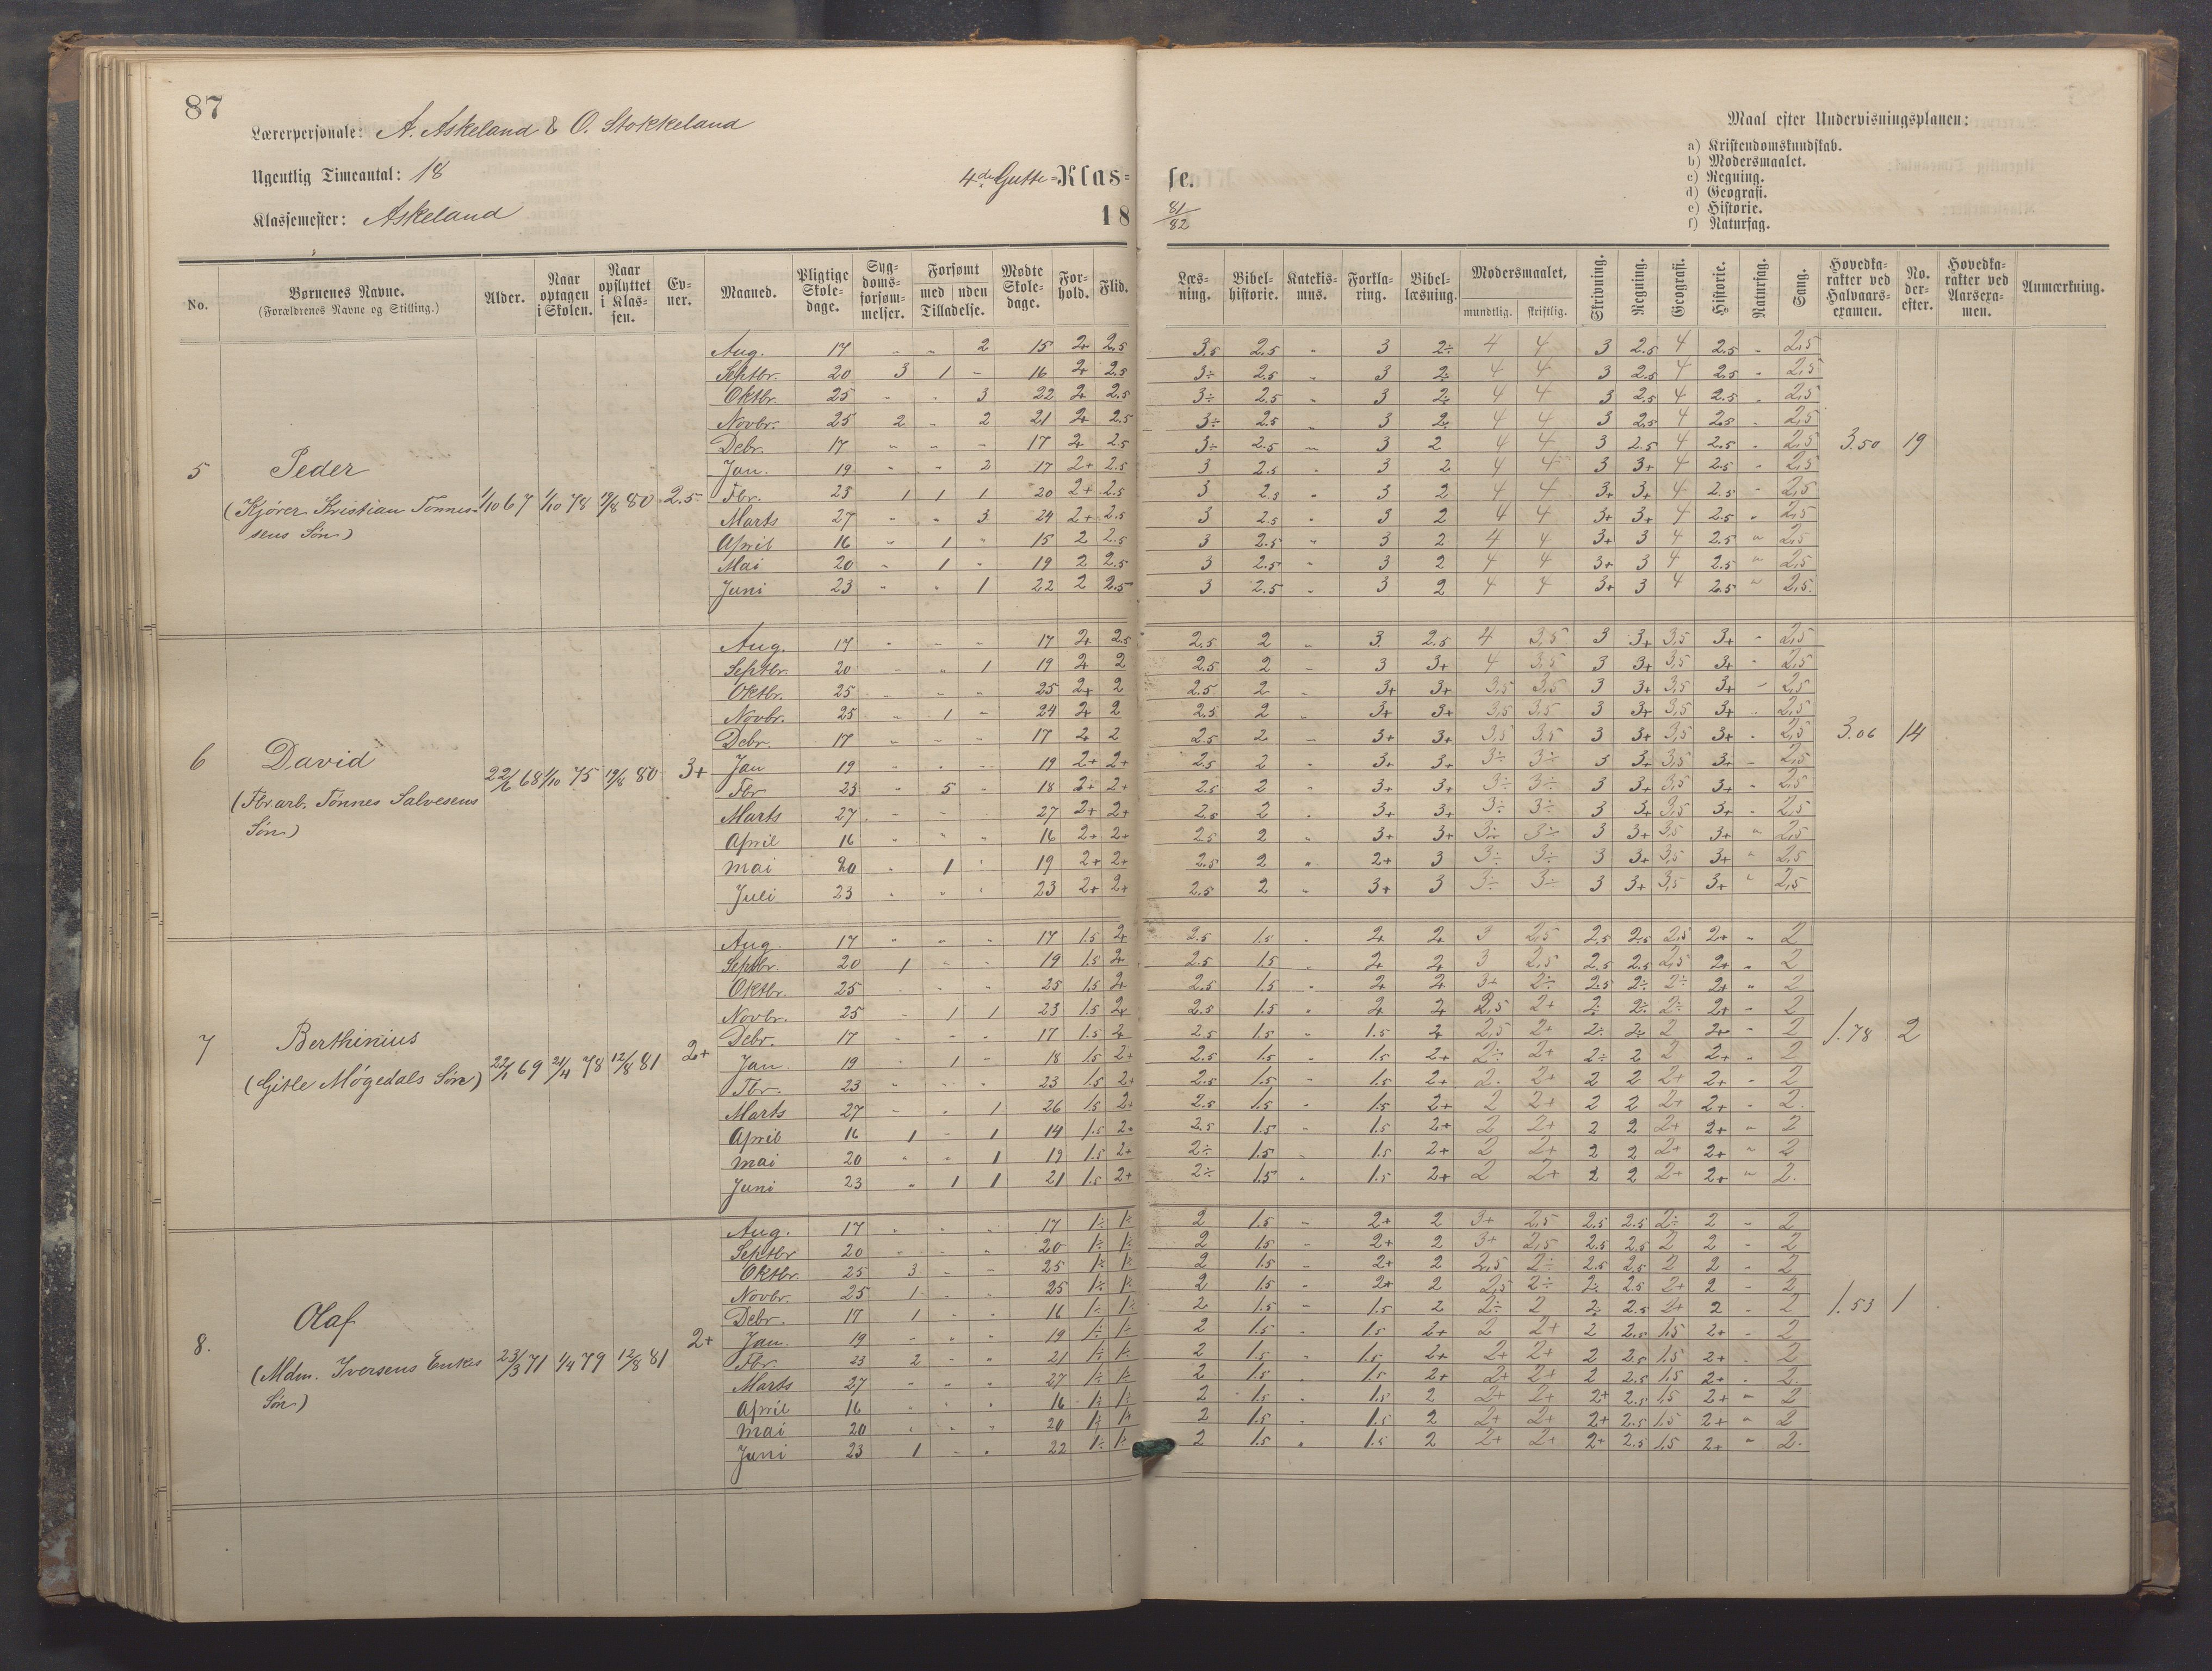 87
Lærerpersonale: A. Askeland & O. Stokkeland
Ugentlig Timeantal: 18
Klassemester: Askeland
4de Gutte-Klas= se.
18 81/82
Maal efter Undervisningsplanen:
a) Kristendomskundskab.
b) Modersmaalet.
c) Regning.
d) Geografi.
e) Historie.
f) Naturfag.
No. | Børnenes Navne. (Forældrenes Navne og Stilling.) | Alder. | Naar optagen i Skolen. | Naar opflyttet i Klassen. | Evner. | Maaned. | Pligtige Skoledage. | Sygdomsforsømmelser. | Forsømt med Tilladelse. | Forsømt uden Tilladelse. | Mødte Skoledage. | Forhold. | Flid. | Læsning. | Bibelhistorie. | Katekismus. | Forklaring. | Bibellæsning. | Modersmaalet, mundtlig. | skriftlig. | Skrivning. | Regning. | Geografi. | Historie. | Naturfag. | Sang. | Hovedkarakter ved Halvaarsexamen. | No. derefter. | Hovedkarakter ved Aarsexamen. | Anmærkning.
5 Peder (Kjører Kristian Tønnessens Søn) 1/10 67 1/10 78 19/8 80 2.5 3.50 19
Aug. 17 " " 2 15 2+ 2.5 3.5 2.5 " 3 2÷ 4 4 3 2.5 4 2.5 " 2,5
Septbr. 20 3 1 " 16 2+ 2.5 3÷ 2.5 " 3 2÷ 4 4 3 2.5 4 2.5 " 2,5
Oktbr. 25 " " 3 22 2+ 2.5 3÷ 2.5 " 3 2÷ 4 4 3 2.5 4 2.5 " 2,5
Novbr. 25 2 " 2 21 2+ 2.5 3÷ 2.5 " 3 2÷ 4 4 3 2.5 4 2.5 " 2,5
Debr. 17 " " " 17 2+ 2.5 3÷ 2.5 " 3 2 4 4 3 2.5 4 2.5 " 2,5
Jan. 19 " " 2 17 2+ 2.5 3 2.5 " 3 2 4 4 3 3+ 4 2.5 " 2,5
Fbr. 23 1 1 1 20 2+ 2.5 3 2.5 " 3 2 4 4 3+ 3+ 4 2.5 " 2,5
Marts 27 " " 3 24 2+ 2.5 3 2.5 " 3 2 4 4 3+ 3+ 4 2.5 " 2,5
April 16 " 1 " 15 2 2.5 3 2.5 " 3 2 4 4 3+ 3 4 2.5 " 2,5
Mai 20 " 1 " 19 2 2.5 3 2.5 " 3 2 4 4 3+ 3 4 2.5 " 2,5
Juni 23 " " 1 22 2 2.5 3 2.5 " 3 2 4 4 3+ 3 4 2.5 " 2,5.
6 David (Fbrarb. Tønnes Salvesens Søn) 22/6 68 1/10 75 19/8 80 3+ 3.06 14
Aug. 17 " " " 17 2+ 2.5 2.5 2 " 3. 2.5 4 3,5 3 3+ 3,5 3+ " 2,5
Septbr. 20 " " 1 19 2+ 2 2.5 2 " 3 3+ 4 3,5 3 3+ 3,5 3+ " 2,5
Oktbr. 25 " " " 25 2+ 2 2.5 2 " 3+ 3+ 3,5 3,5 3 3+ 3,5 3+ " 2,5
Novbr. 25 " 1 " 24 2+ 2 2.5 2 " 3+ 3+ 3,5 3,5 3 3+ 3,5 3+ " 2,5
Debr. 17 " " " 17 2+ 2 2.5 2 " 3+ 3+ 3,5 3,5 3 3+ 3,5 3+ " 2,5
Jan 19 " " " 19 2+ 2+ 2.5 2 " 3+ 3+ 3÷ 3÷ 3 3+ 3,5 3+ " 2,5
Fbr 23 " 5 " 18 2+ 2+ 2.5 2 " 3+ 3+ 3÷ 3÷ 3 3+ 3,5 3+ " 2,5
Marts 27 " " " 27 2+ 2+ 2.5 2 " 3+ 3+ 3÷ 3÷ 3 3+ 3,5 3+ " 2,5
April 16 " " " 16 2+ 2+ 2.5 2 " 3+ 3+ 3÷ 3÷ 3 3+ 3,5 3+ " 2,5
Mai 20 " 1 " 19 2+ 2+ 2.5 2 " 2+ 3 3÷ 3÷ 3 3+ 3,5 3+ " 2,5
Juli 23 " " " 23 2+ 2+ 2.5 2 " 3+ 3 3÷ 3÷ 3 3+ 3,5 3+ " 2,5
7 Berthinius (Gitle Møgedals Søn) 22/1 69 21/4 78 12/8 81 2+ 1.78 2
Aug. 17 " " " 17 1.5 2+ 2.5 1.5 " 2+ 2+ 3 2,5 2.5 2.5 2,5 2+ " 2
Septbr. 20 1 " " 19 1.5 2+ 2.5 1.5 " 2+ 2+ 3 2,5 2.5 2.5 2,5 2+ " 2
Oktbr. 25 " " " 25 1.5 2+ 2.5 1.5 " 2+ 2+ 3+ 2÷ 2.5 2÷ 2÷ 2+ " 2
Novbr. 25 " 1 1 23 1.5 2+ 2.5 1.5 " 2+ 2+ 2,5 2+ 2÷ 2÷ 2÷ 2+ " 2
Debr. 17 " " " 17 1.5 2+ 2.5 1.5 " 1.5 2+ 2,5 2+ 2÷ 2÷ 2 2+ " 2
Jan. 19 " 1 " 18 1.5 2+ 2.5 1.5 " 1.5 2+ 2÷ 2+ 2÷ 2 2 2+ " 2
Fbr. 23 " " " 23 1.5 2+ 2.5 1.5 " 1.5 2+ 2. 2+ 2 2 2+ 2+ " 2
Marts 27 " " 1 26 1.5 2+ 2.5 1.5 " 1.5 2+ 2 2+ 2 2 2+ 2+ " 2.
April 16 1 " 1 14 1.5 2+ 2.5 1.5 " 1.5 2+ 2 2+ 2 2 2+ 2+ " 2
Mai 20 " " 1 19 1.5 2+ 2÷ 1.5 " 1.5 2+ 2 2+ 2 2 2+ 2+ " 2
Juni 23 " 1 1 21 1.5 2+ 2÷ 1.5 " 1.5 2+ 2 2+ 2 2 2+ 2+ " 2.
8. Olaf (Mdm. Iversens Enkes Søn) 23/3 71 1/4 79 12/8 81 2+ 1.53 1
Aug. 17 " " " 17 1÷ 1÷ 2 1.5 " 2+ 2 3+ 2,5 2.5 2.5 2÷ 2 " 2
Septbr 20 " " " 20 1÷ 1÷ 2 1.5 " 2+ 2 3+ 2,5 2.5 2.5 2 2 " 2
Oktbr. 25 3 " " 25 1÷ 1÷ 2 1.5 " 2+ 2 2,5 2÷ 2.5 2.5 2 2 " 2
Novbr. 25 1 " " 25 1÷ 1÷ 2 1.5 " 2+ 2 2,5 2÷ 2÷ 2.5 2+ 2 " 2
Debr. 17 1 " " 16 1÷ 1÷ 2 1.5 " 1.5 2 2÷ 2 2÷ 2.5 2+ 2 " 2
Jan. 19 " " " 19 1÷ 1÷ 2 1.5 " 1.5 2+ 2 2+ 2 2.5 1,5 2+ " 2
Fbr. 23 2 " " 21 1÷ 1÷ 2 1.5 " 1.5 2+ 2+ 2+ 2 2.5 1,5 2+ " 2
Marts 27 " " " 27 1÷ 1÷ 2 1.5 " 1.5 2+ 2+ 2+ 2 2.5 1,5 2+ " 2.
April 16 " " " 16 1÷ 1÷ 2 1.5 " 1.5 2 2+ 2+ 2+ 2.5 1,5 2+ " 2
Mai 20 " " " 20 1÷ 1÷ 2 1.5 " 1.5 2 2+ 2+ 2+ 2.5 1,5 2+ " 2
Juni 23 1 " " 22 1÷ 1÷ 2 1.5 " 1.5 2 2+ 2+ 2+ 2.5 1,5 2+ " 2.